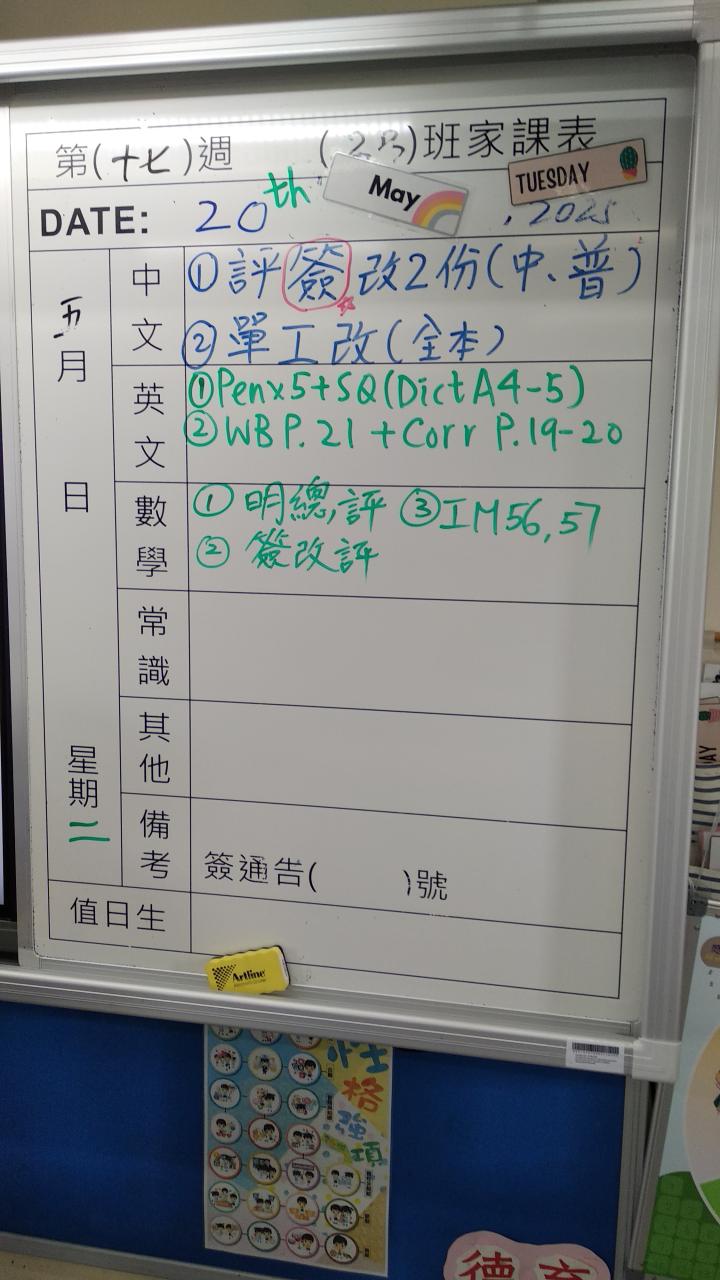 第(十七)週 (2B)班家課表
DATE: 20th May TUESDAY , 2025
五月 日 星期二
中文 ①評簽改2份(中、普)
②單工改(全本)
英文 ①Penx5+SQ(Dict A4-5)
②WB P.21 + Corr P.19-20
數學 ①明總,評 ③IM56,57
②簽改評
常識
其他
備考 簽通告( )號
值日生
Artline
性格強項
德育